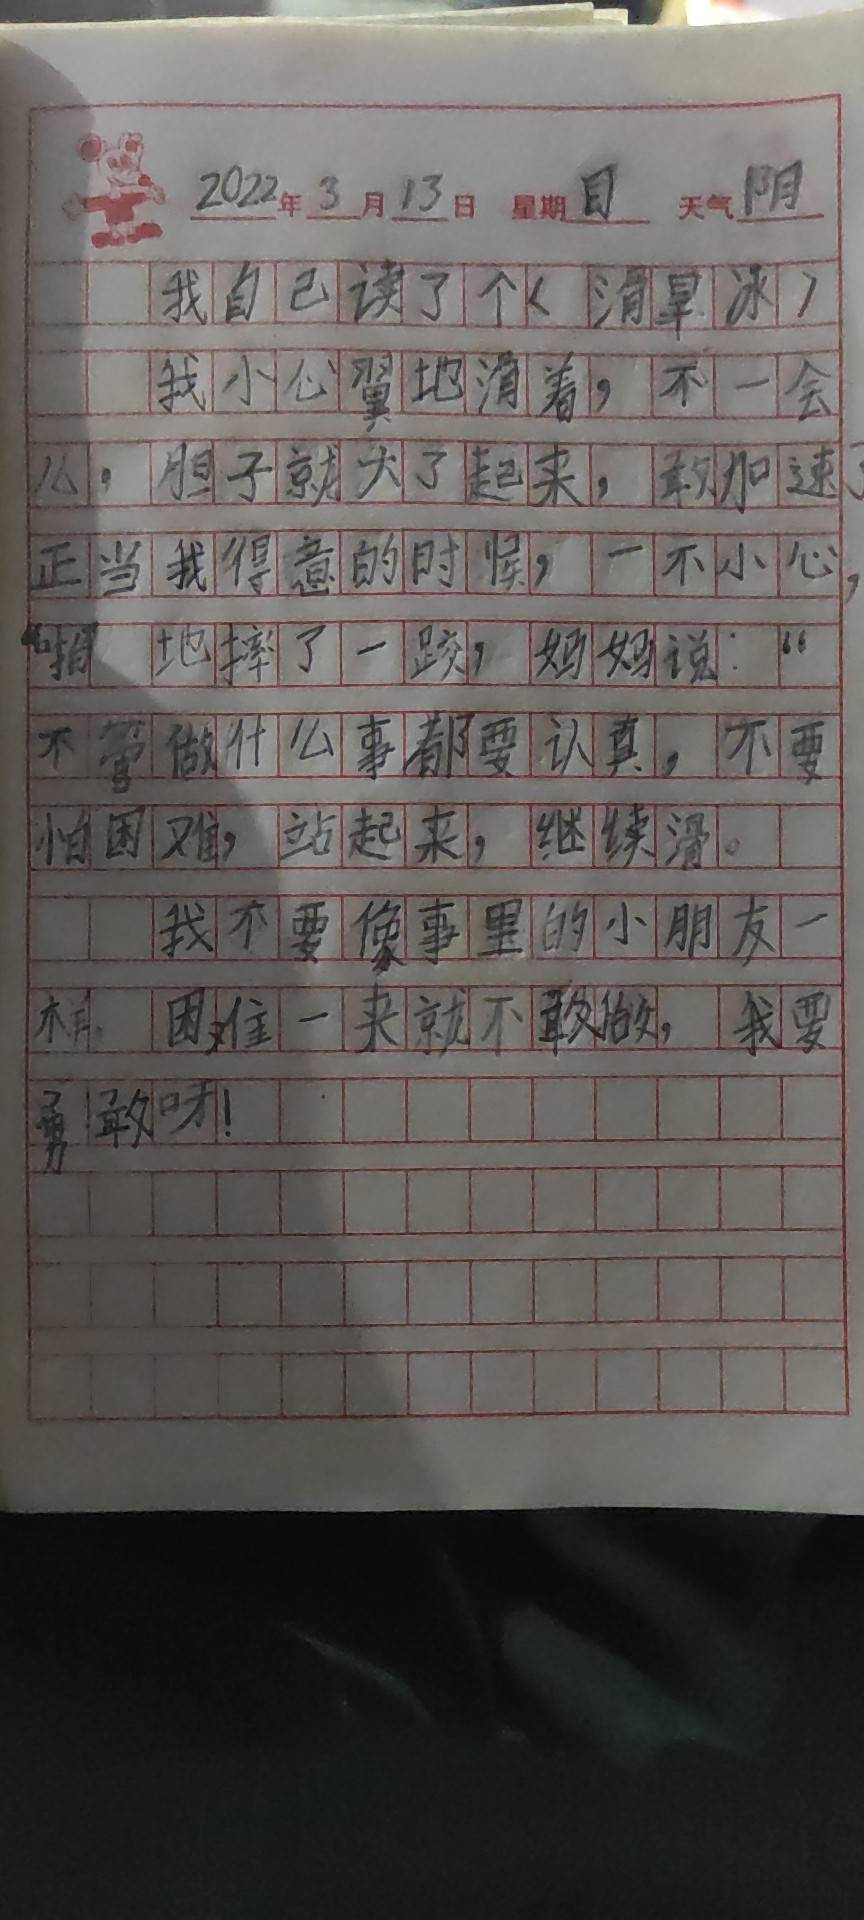 2022年3月13日 星期日 天气阴
我自己读了个《滑旱冰》
我小心翼地滑着，不一会
么，胆子就大了起来，敢加速了
正当我得意的时候，一不小心，
“啪 地摔了一跤，妈妈说：“
不管做什么事都要认真，不要
怕困难，站起来，继续滑。
我不要像事里的小朋友一
样 困难一来就不敢做，我要
勇敢呀！